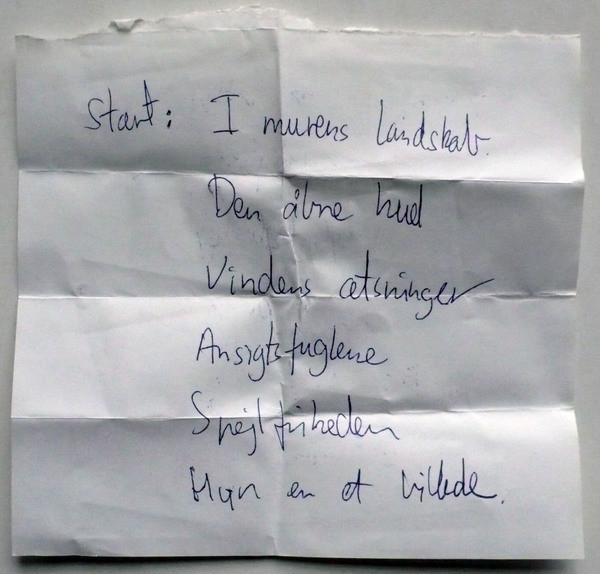 Start: I murens landskab.
Den åbne hud
Vindens ætsninger
Ansigtsfuglene
Spejlfriheden
Hun en et billede.